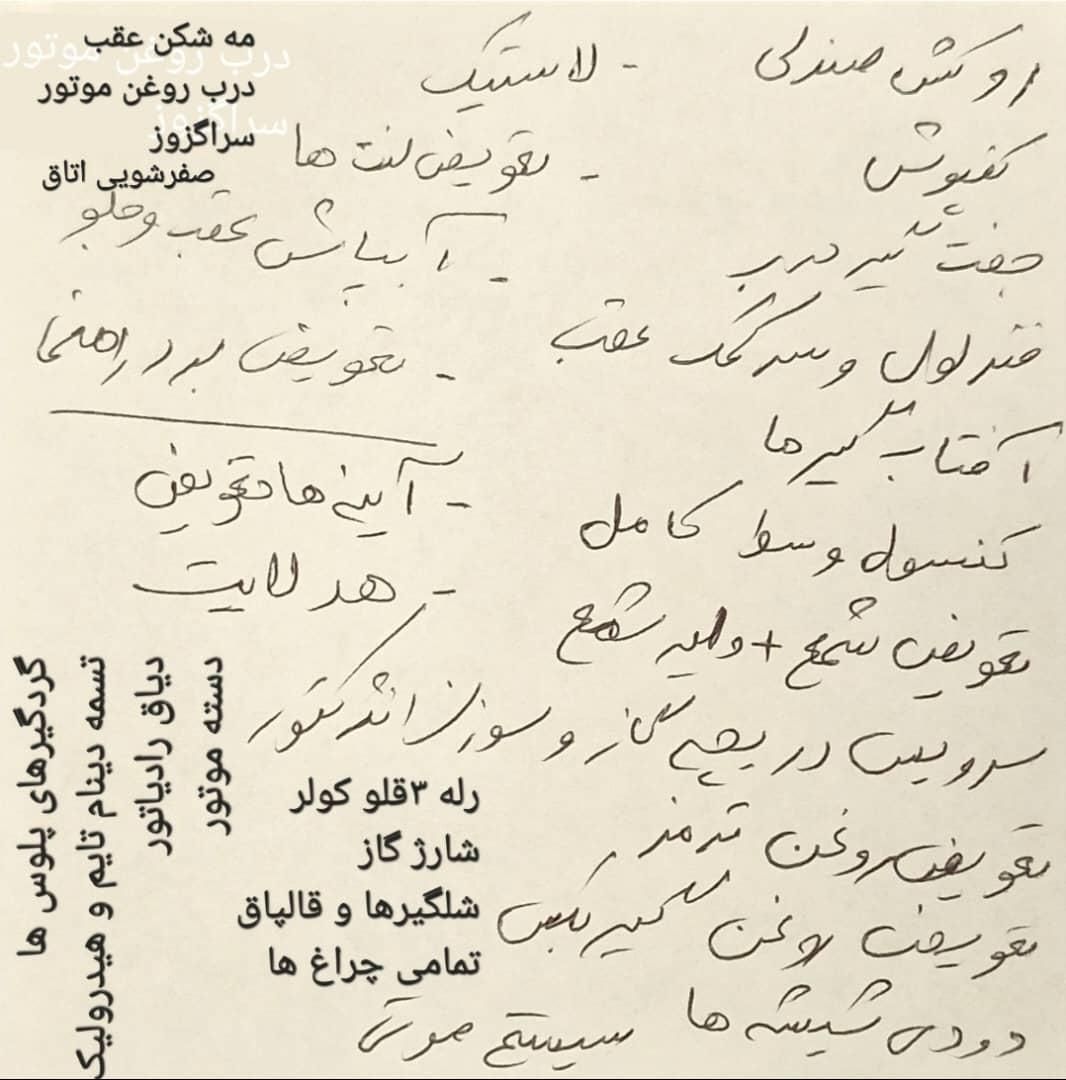 روکش صندلی
کفپوش
جفت گیر درب
فندلول و سرکمک عقب
آفتاب گیرها
کنسول وسط کامل
تعویض شمع + وایر شمع
سرویس دریچه گاز و سوزن انژکتور
تعویض روغن ترمز
تعویض روغن گیربکس
دودی شیشه ها
سیستم صوتی
- لاستیک
- تعویض لنت ها
- آبپاش عقب و جلو
- تعویض برد راهنما
- آینه ها تعویض
- هدلایت
مه شکن عقب
درب روغن موتور
سراگزوز
صفرشویی اتاق
درب روغن موتور
سراگزوز
رله ۳قلو کولر
شارژ گاز
شلگیرها و قالپاق
تمامی چراغ ها
دسته موتور
دیاق رادیاتور
تسمه دینام تایم و هیدرولیک
گردگیرهای پلوس ها